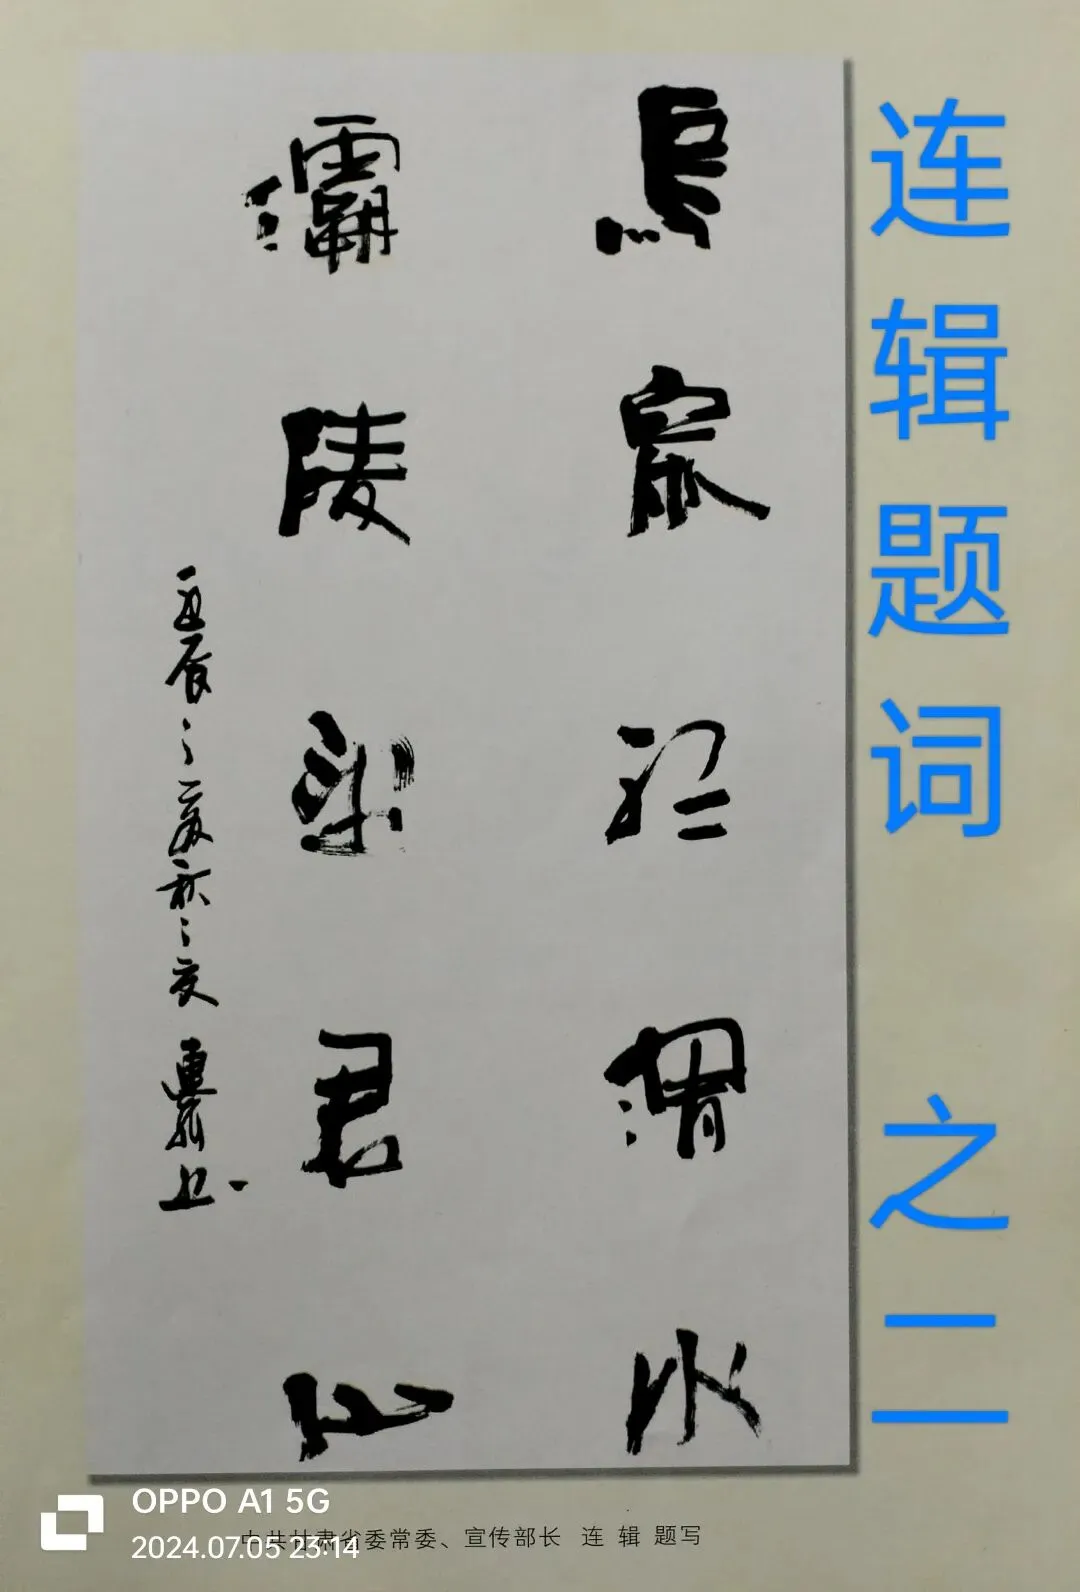 鳥鼠渭水
灞陵梁君山
壬辰之夏秋之交 連辑
连辑题词 之二
中共甘肃省委常委、宣传部长 连 辑 题写
OPPO A1 5G
2024.07.05 23:14